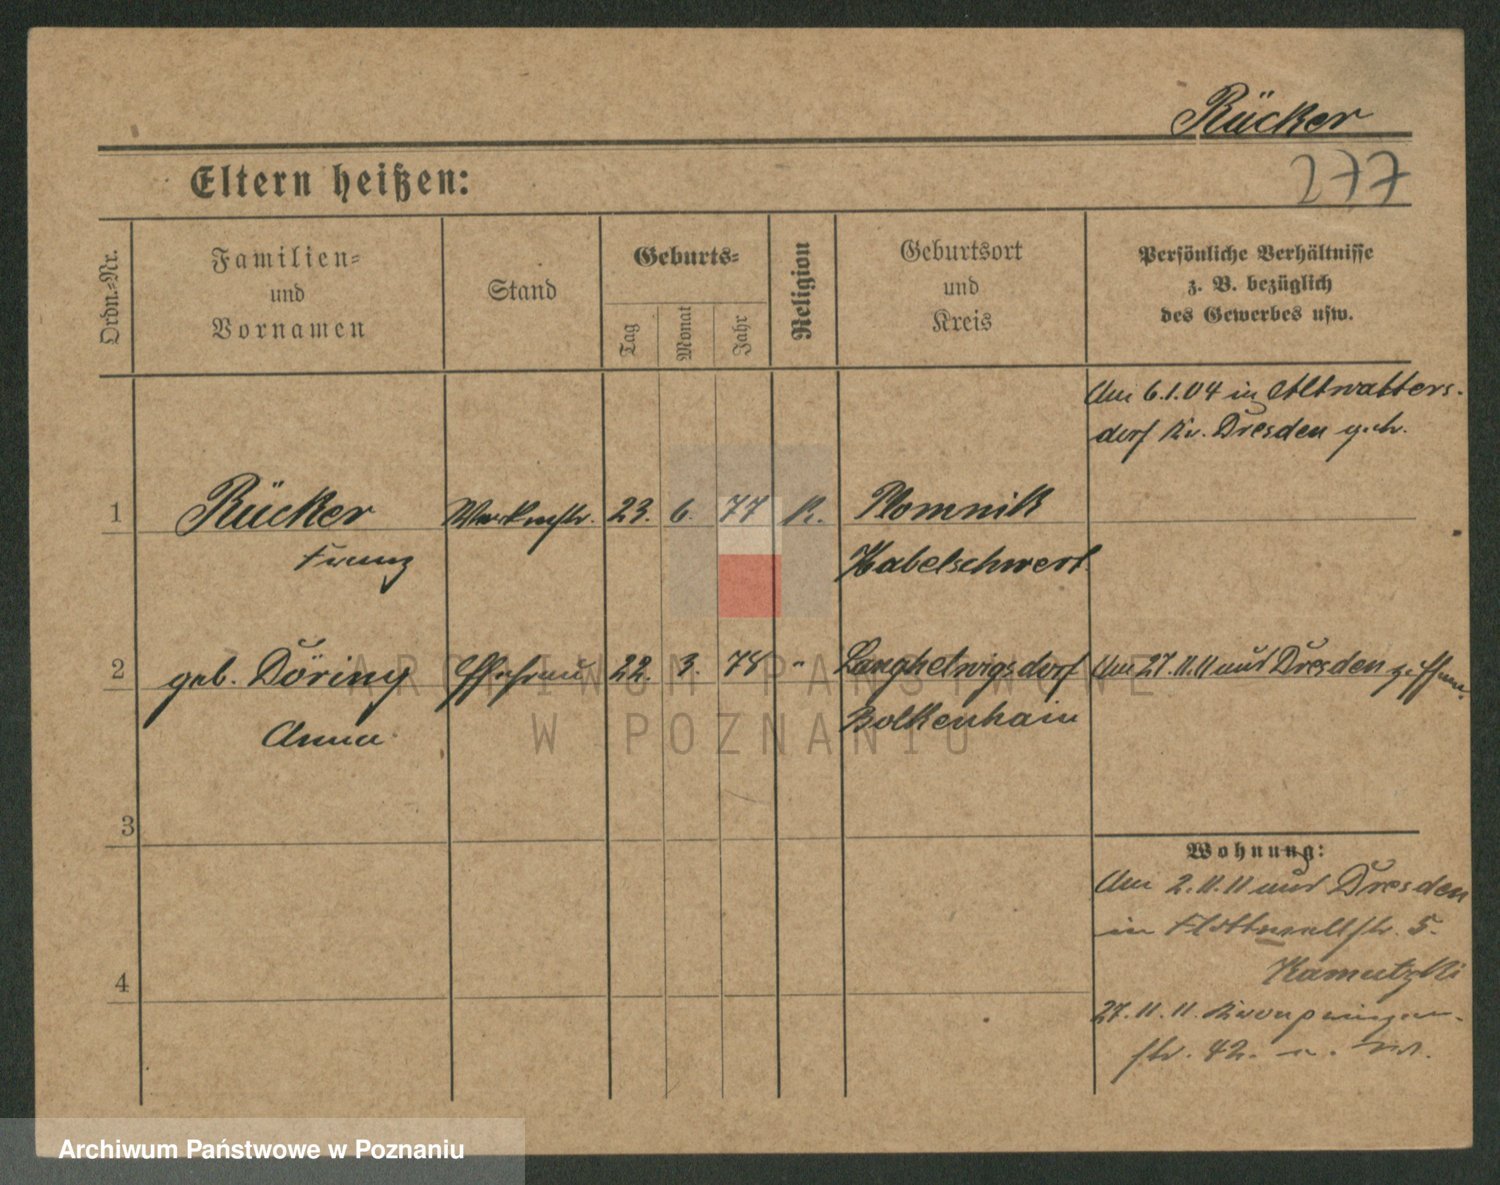 Rücker
277
Eltern heißen:
Ordn.-Nr.
Familien-
und
Vornamen
Stand
Geburts-
Tag
Monat
Jahr
Religion
Geburtsort
und
Kreis
Persönliche Verhältnisse
z. B. bezüglich
des Gewerbes usw.
Am 6.1.04 in Altwatters-
dorf Kr. Dresden
1 Rücker 23. 6. 77 K. Plomnik
Franz Habelschwert
2 geb. Döring Ehefrau 22. 3. 78 " Langhelwigsdorf Am 27.11.11 aus Dresden
Anna Bolkenhain
3
Wohnung:
Am 2.11.11 aus Dresden
in Flottwellstr. 5.
4
27.11.11. Kronprinzen-
str. 42.
ARCHIWUM PAŃSTWOWE
W POZNANIU
Archiwum Państwowe w Poznaniu